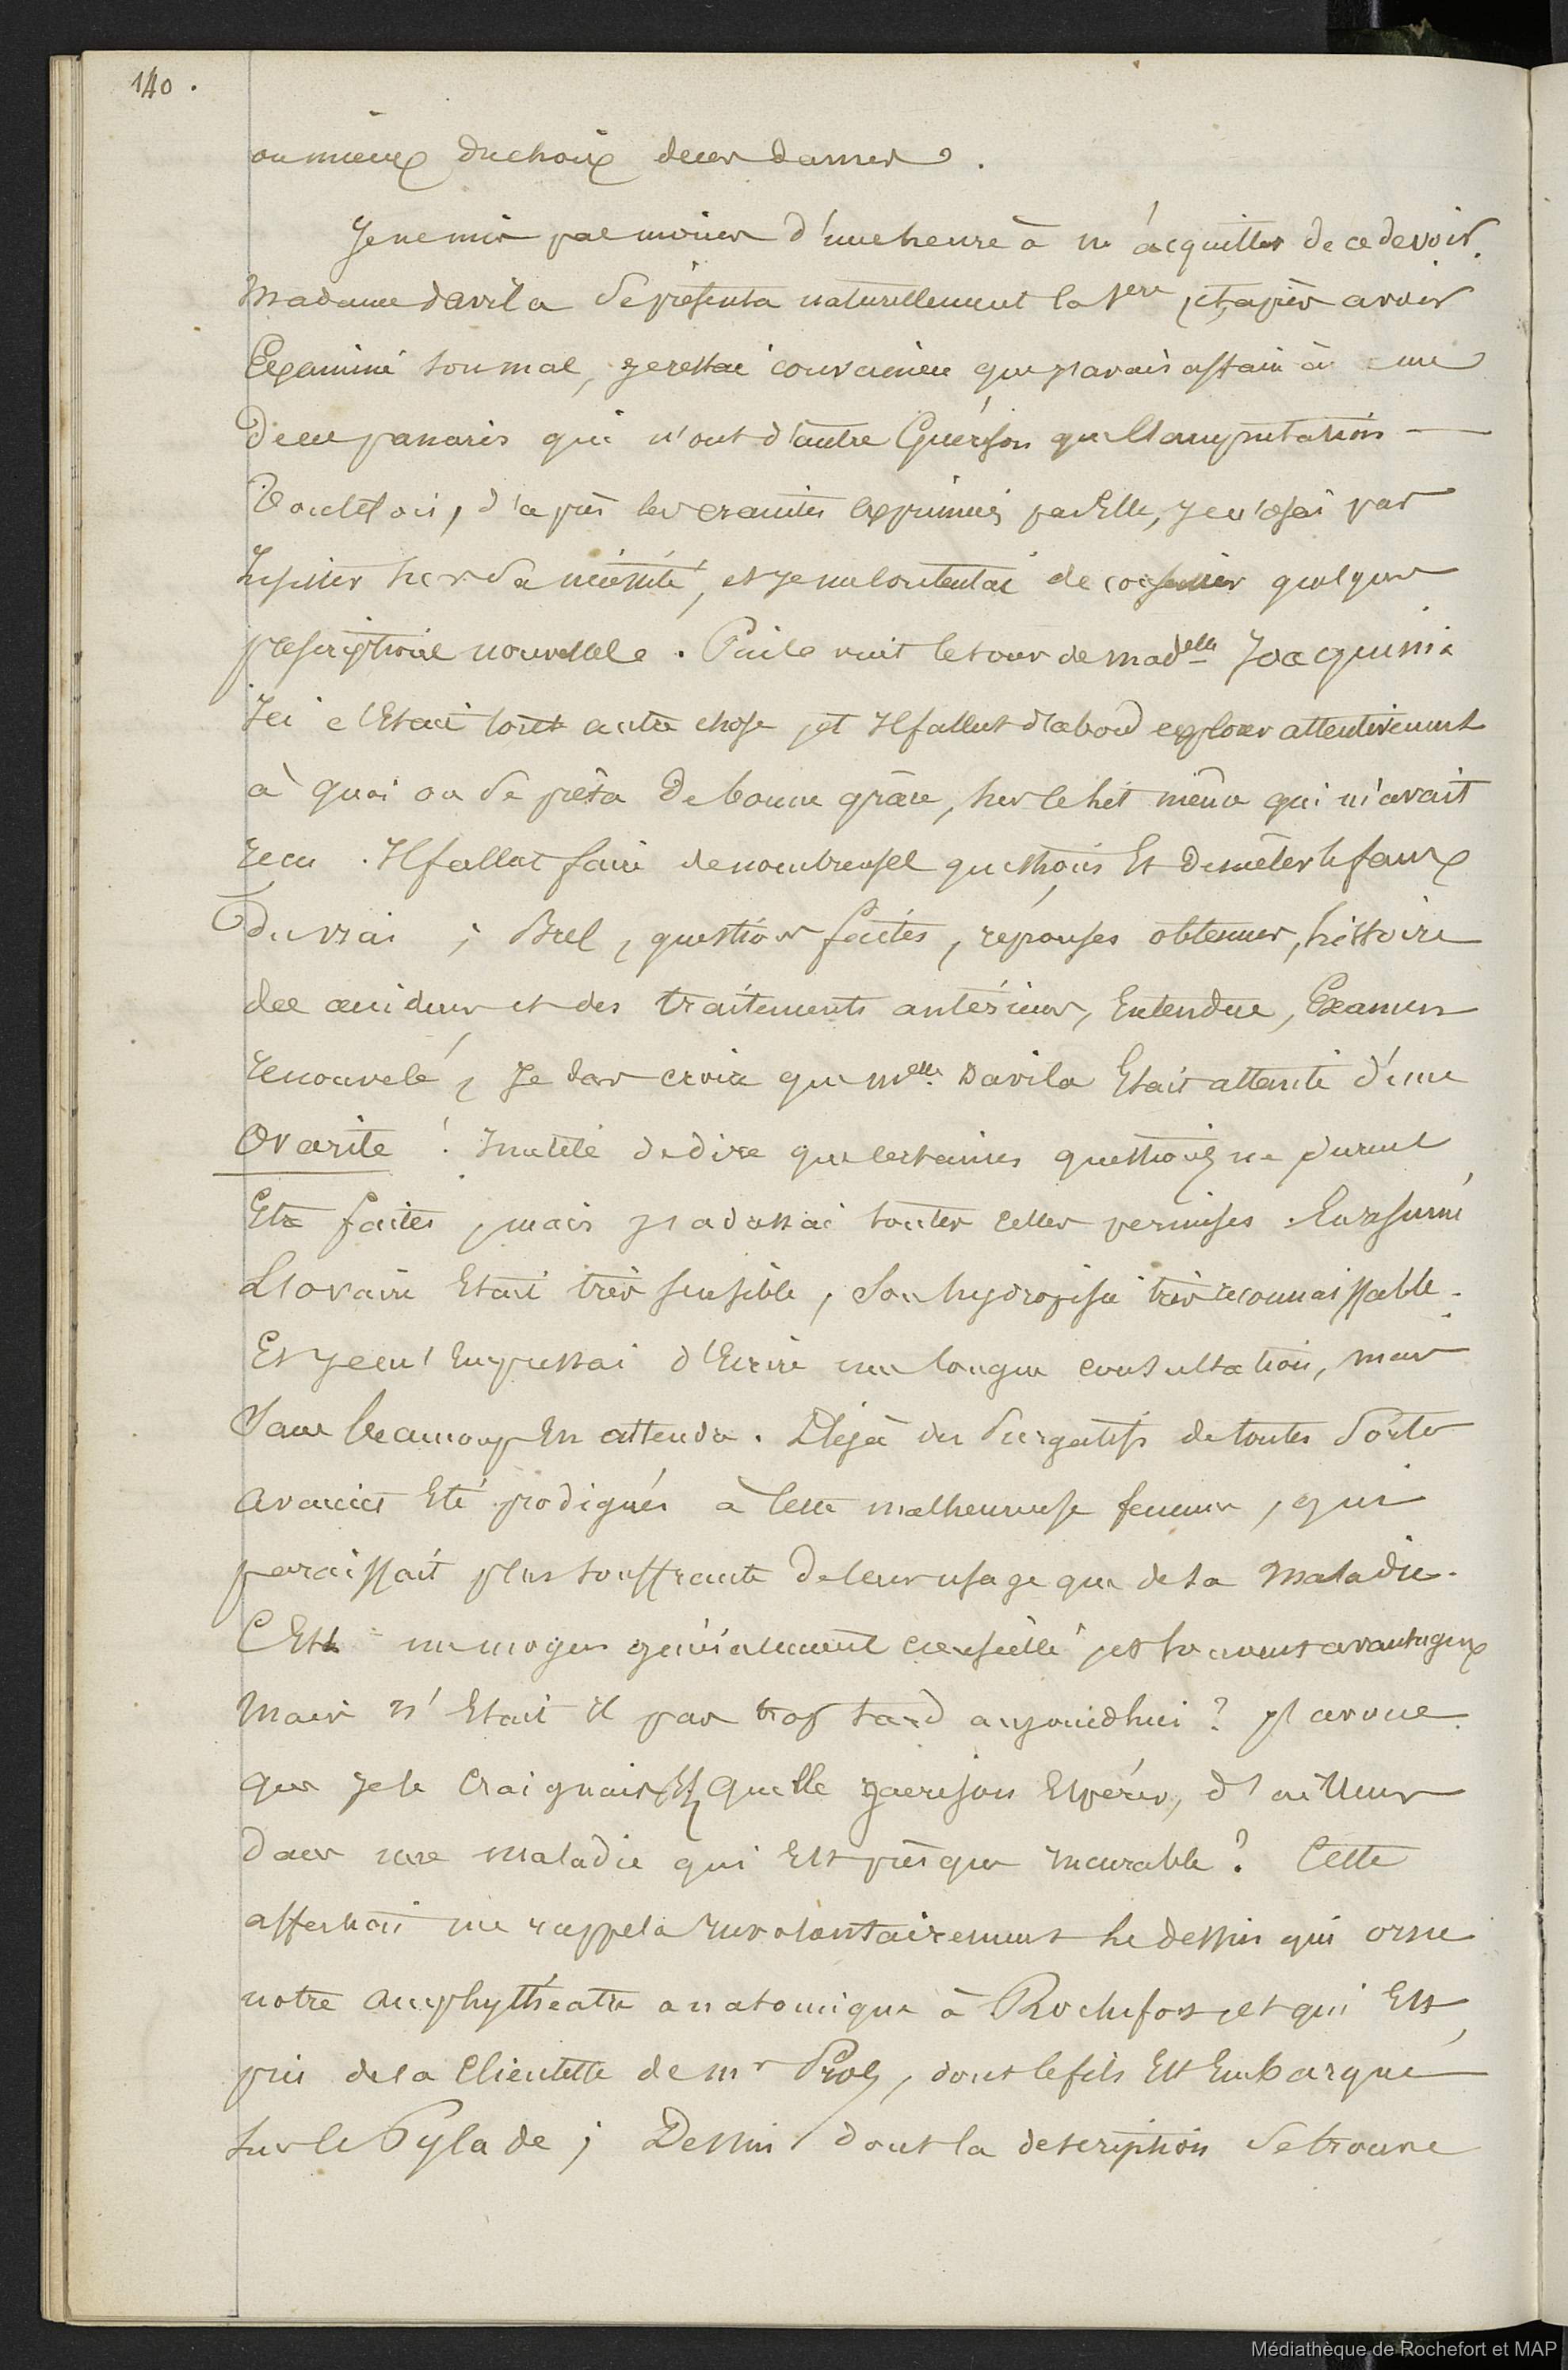 140.
ou mieux du choix de ces dames.
Je ne mis pas moins d'une heure à m'acquitter de ce devoir.
Madame davila se présenta naturellement la 1ere, et, après avoir
Examiné son mal, je restai convaincu que j'avais affaire à une
de ces panaris qui n'ont d'autre Guérison que l'amputation —
Toutefois, d'après les craintes exprimées par Elle, je n'osai pas
Insister sur sa nécessité, et je me contentai de conseiller quelques
prescriptions nouvelles. Puis vint le tour de madelle Joacquinia
Ici c'Etait tout autre chose, et Il fallut d'abord explorer attentivement
à quoi on se prêta de bonne grâce, sur le lit même qui m'avait
reçu. Il fallut faire de nombreuses questions Et Demêler le faux
du vrai ; Bref, questions faites, réponses obtenues, histoire
des accidens et des traitements antérieurs, Entendue, Examen
renouvelé, Je dus croire que melle Davila Etait atteinte d'une
Ovarite ! Inutile de dire que certaines questions ne purent
Etre faites, mais j'adressai toutes celles permises. En résumé
L'ovaire Etait très sensible, Son hydropisie très reconnaissable.
Et je m'Empressai d'Ecrire une longue consultation, mais
Sans beaucoup En attendre. Déjà des Purgatifs de toutes Sortes
avaient Eté prodigués à cette malheureuse femme, qui
paraissait plus souffrante de leur usage que de sa Maladie.
C'Est un moyen généralement conseillé, et souvent avantageux
Mais n'Etait il pas trop tard aujourd'hui ? j'avoue
que je le craignais, Et quelle guérison Espérer, d'ailleurs
dans une maladie qui Est presque Incurable ? Cette
affection me rappela Involontairement le dessin qui orne
notre amphythéatre anatomique à Rochefort, et qui Est
pris de la Clientelle de mr, dont le fils Est Embarqué
sur le Pylade ; Dessin dont la description se trouve
Médiathèque de Rochefort et MAP